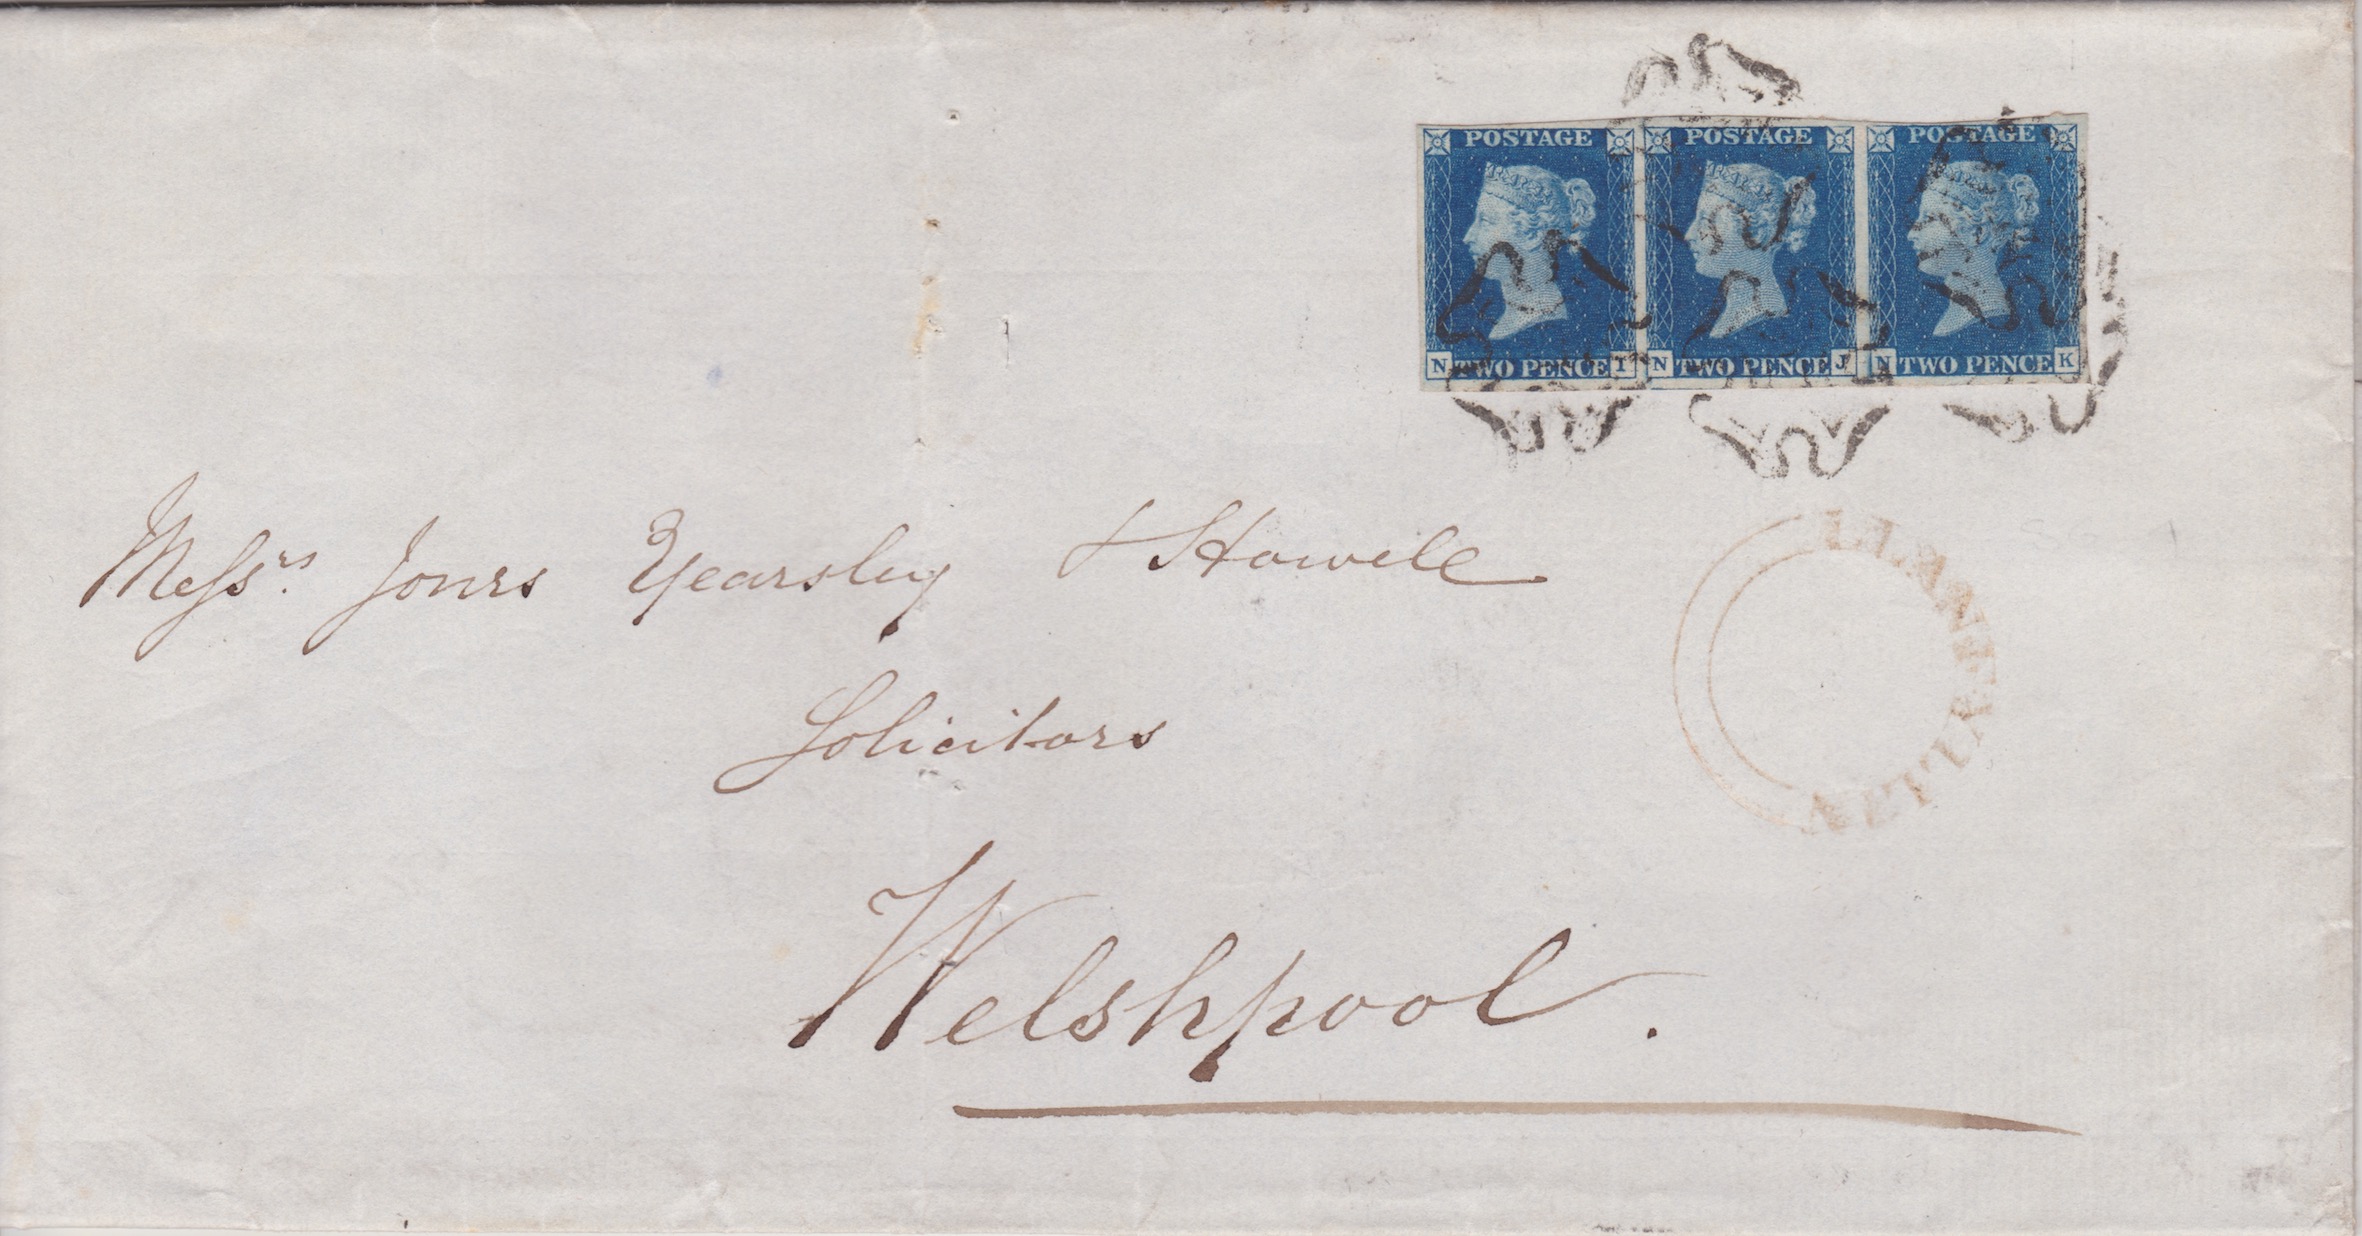 POSTAGE POSTAGE POSTAGE
N TWO PENCE I N TWO PENCE J N TWO PENCE K
Messrs. Jones Yearsley & Howell
Solicitors
Welshpool.
LLANFYLLIN